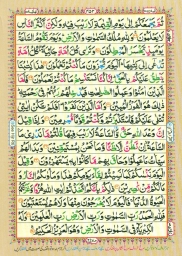 ثُمَّ يَجْمَعُكُمْ اِلٰى يَوْمِ الْقِيٰمَةِ لَا رَيْبَ فِيْهِ وَلٰكِنَّ اَكْثَرَ النَّاسِ
لَا يَعْلَمُوْنَ وَلِلّٰهِ مُلْكُ السَّمٰوٰتِ وَالْاَرْضِ وَيَوْمَ تَقُوْمُ السَّاعَةُ
يَوْمَئِذٍ يَّخْسَرُ الْمُبْطِلُوْنَ وَتَرٰى كُلَّ اُمَّةٍ جَاثِيَةً كُلُّ اُمَّةٍ
تُدْعٰٓى اِلٰى كِتٰبِهَا اَلْيَوْمَ تُجْزَوْنَ مَا كُنْتُمْ تَعْمَلُوْنَ هٰذَا كِتٰبُنَا
يَنْطِقُ عَلَيْكُمْ بِالْحَقِّ اِنَّا كُنَّا نَسْتَنْسِخُ مَا كُنْتُمْ تَعْمَلُوْنَ فَاَمَّا
الَّذِيْنَ اٰمَنُوْا وَعَمِلُوا الصّٰلِحٰتِ فَيُدْخِلُهُمْ رَبُّهُمْ فِيْ رَحْمَتِهٖ
ذٰلِكَ هُوَ الْفَوْزُ الْمُبِيْنُ وَاَمَّا الَّذِيْنَ كَفَرُوْا اَفَلَمْ تَكُنْ اٰيٰتِيْ
تُتْلٰى عَلَيْكُمْ فَاسْتَكْبَرْتُمْ وَكُنْتُمْ قَوْمًا مُّجْرِمِيْنَ وَاِذَا قِيْلَ
اِنَّ وَعْدَ اللّٰهِ حَقٌّ وَّالسَّاعَةُ لَا رَيْبَ فِيْهَا قُلْتُمْ مَّا نَدْرِيْ مَا
السَّاعَةُ اِنْ نَّظُنُّ اِلَّا ظَنًّا وَّمَا نَحْنُ بِمُسْتَيْقِنِيْنَ وَبَدَا لَهُمْ
سَيِّاٰتُ مَا عَمِلُوْا وَحَاقَ بِهِمْ مَّا كَانُوْا بِهٖ يَسْتَهْزِءُوْنَ وَقِيْلَ
الْيَوْمَ نَنْسٰىكُمْ كَمَا نَسِيْتُمْ لِقَآءَ يَوْمِكُمْ هٰذَا وَمَاْوٰىكُمُ النَّارُ وَمَا
لَكُمْ مِّنْ نّٰصِرِيْنَ ذٰلِكُمْ بِاَنَّكُمُ اتَّخَذْتُمْ اٰيٰتِ اللّٰهِ هُزُوًا وَّغَرَّتْكُمُ
الْحَيٰوةُ الدُّنْيَا فَالْيَوْمَ لَا يُخْرَجُوْنَ مِنْهَا وَلَا هُمْ يُسْتَعْتَبُوْنَ
فَلِلّٰهِ الْحَمْدُ رَبِّ السَّمٰوٰتِ وَرَبِّ الْاَرْضِ رَبِّ الْعٰلَمِيْنَ وَلَهُ
الْكِبْرِيَآءُ فِي السَّمٰوٰتِ وَالْاَرْضِ وَهُوَ الْعَزِيْزُ الْحَكِيْمُ